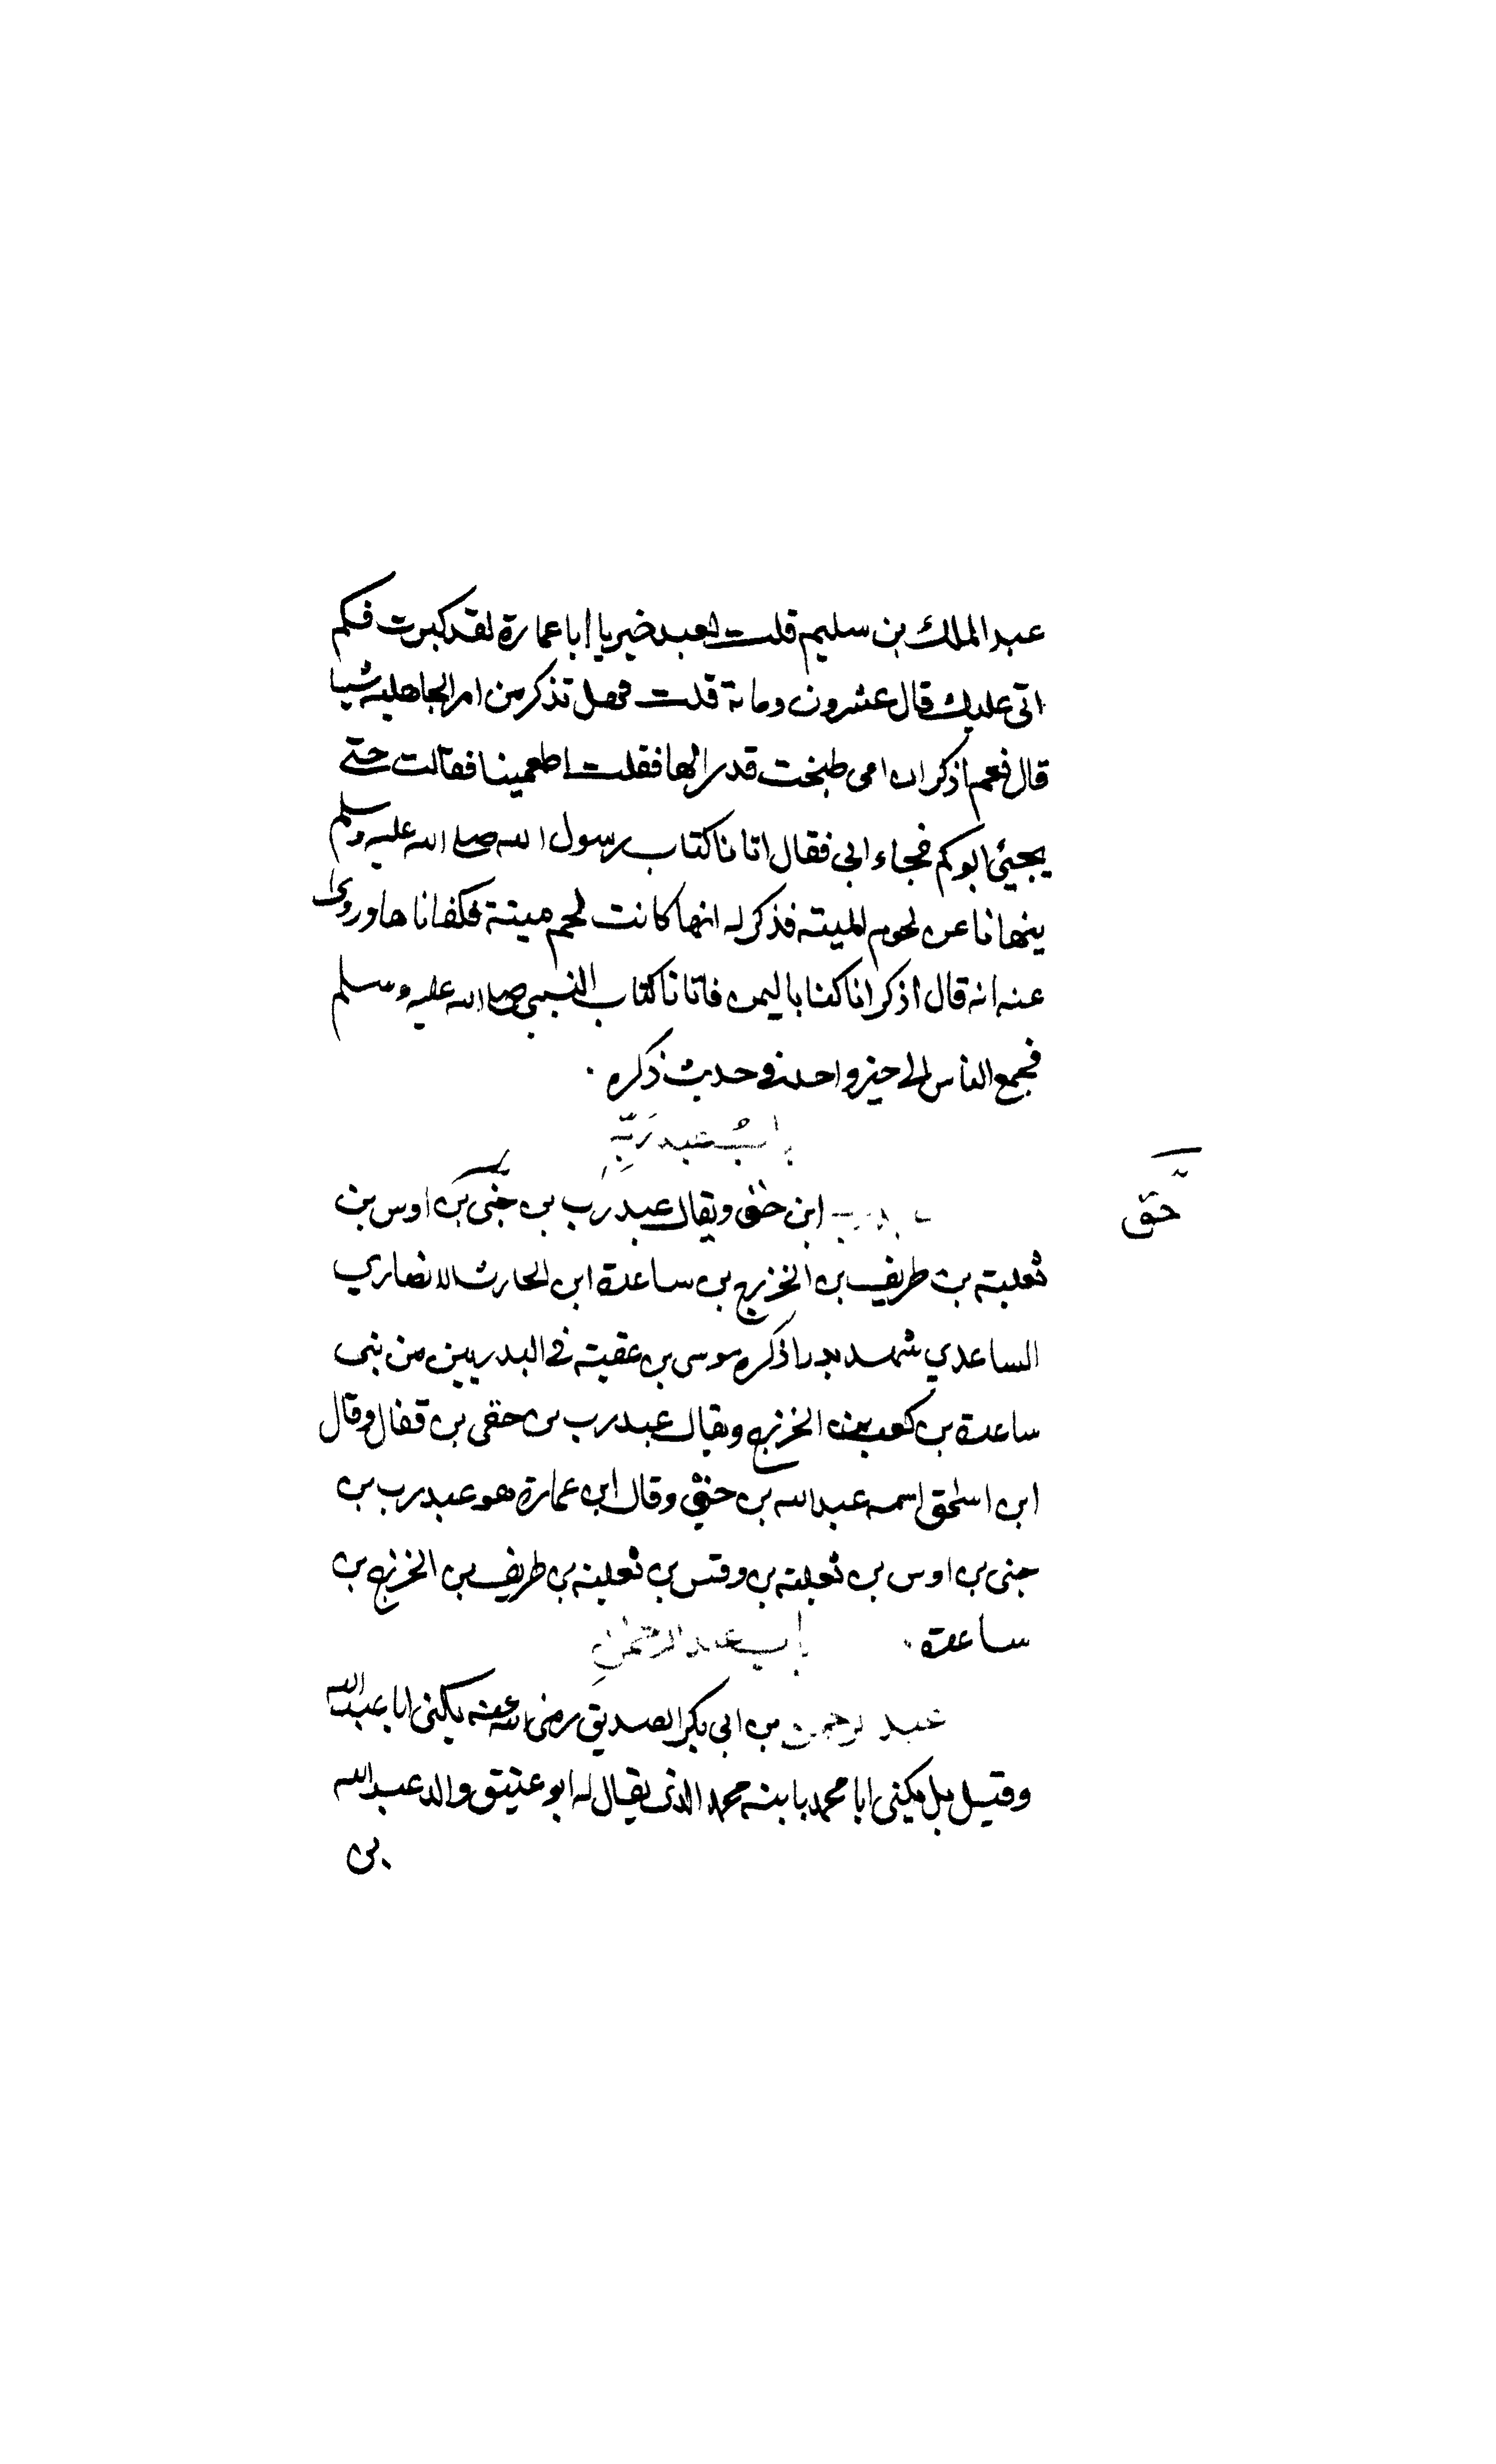 عبد الملك بن سليم قلت لعبد خير يا ابا عمارة لقد كبرت فكم
اتى عليك قال عشرون وماىة قلت فهل تذكر من امر الجاهلية شيا
قال نعم اذكر ان امى طبخت قدرا لها فقلت اطعمينا فقالت حتى
يجيئ ابوكم فجاء ابى فقال اتانا كتاب رسول الله صلى الله عليه وسلم
ينهانا عن لحوم الميتة فذكر له انها كانت لحم ميتة فكفانا ها وروى
عنه انه قال اذكر انا كنا باليمن فاتانا كتاب النبى صلى الله عليه وسلم
فجمع الناس الى حيز واحد فى حديث ذكره .
باب عبد ربه
حق
ابن حق ويقال عبد رب بن جنى بن اوس بن
ثعلبة بن طريف بن الخزرج بن ساعدة ابن الحارث الانصاري
الساعدي شهد بدرا ذكره موسى بن عقبة فى البدريين من بنى
ساعدة بن كعب بن الخزرج ويقال عبد رب بن حقى بن قفال وقال
ابن اسحق اسمه عبد الله بن حق وقال ابن عمارة هو عبد رب بن
جنى بن اوس بن ثعلبة بن وقش بن ثعلبة بن طريف بن الخزرج بن
ساعدة .
باب عبد الرحمن
عبد الرحمن بن ابى بكر الصديق رضى الله عنه يكنى ابا عبد الله
وقيل بل يكنى ابا محمد بابنه محمد الذى يقال له ابو عتيق والد عبد الله
بن